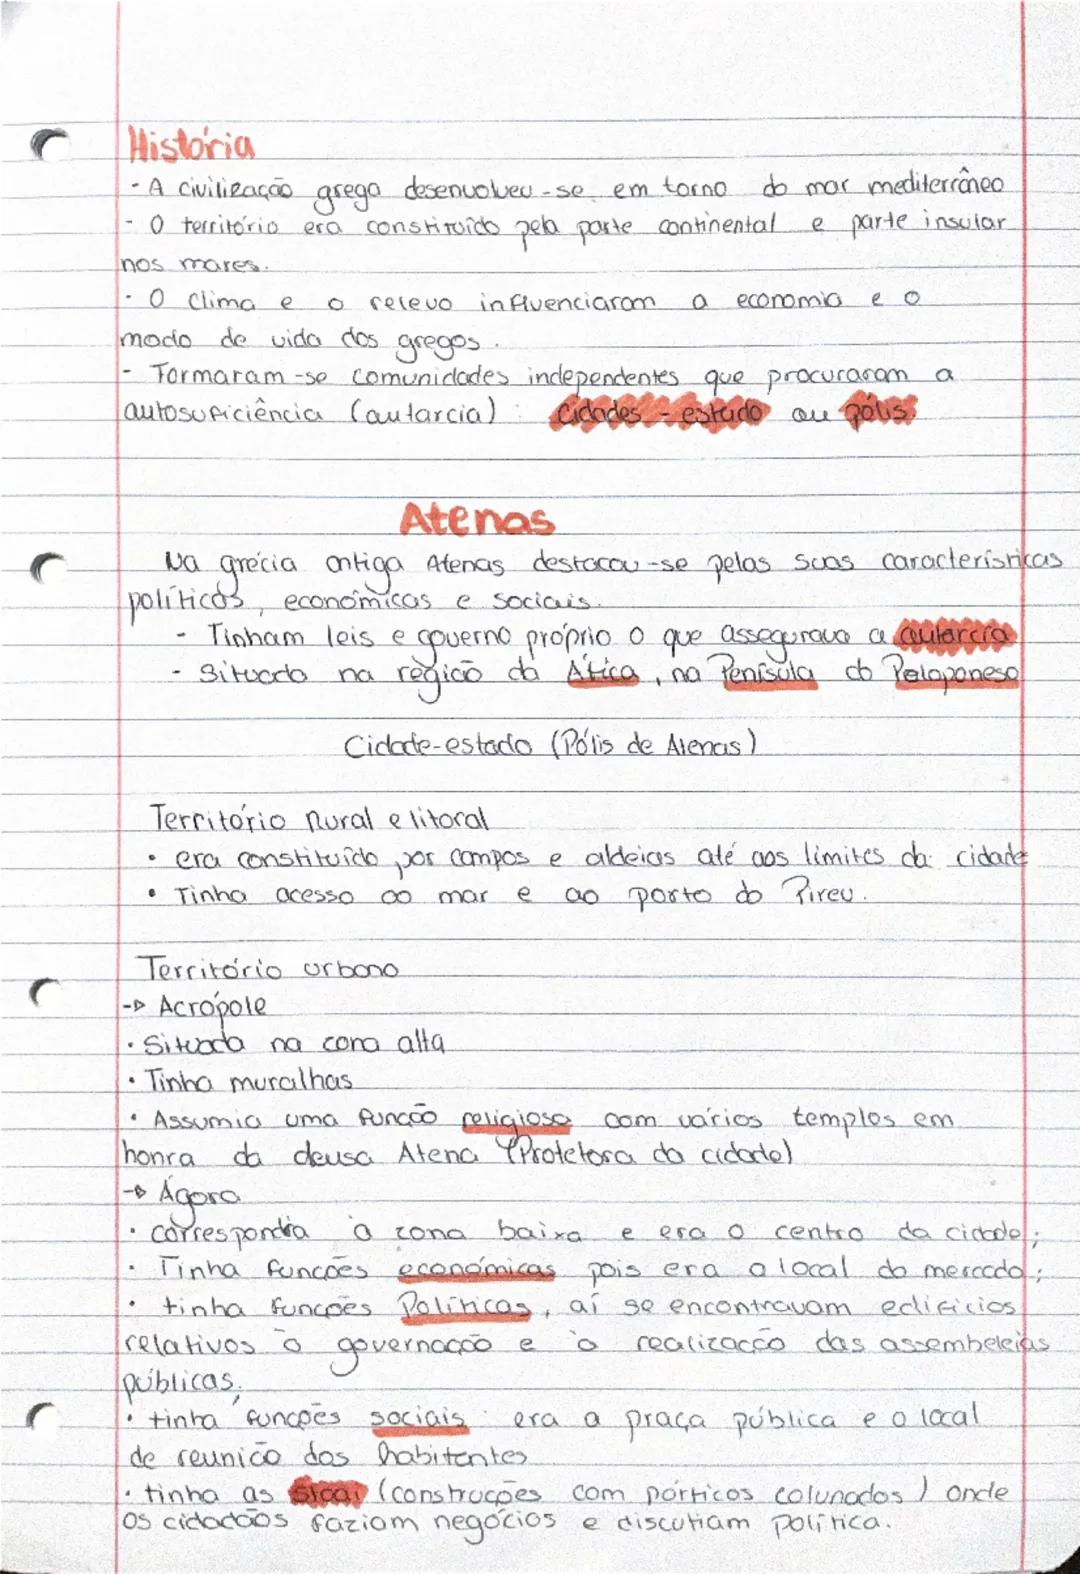 História
- A civilização grega desenvolveu-se em torno do mar mediterrâneo
- O território era constituído pela parte continental e parte insular
nos mares.
- O clima e o relevo influenciaram a economia e o
modo de vida dos gregos.
- Formaram-se comunidades independentes que procuraram a
autosuficiência (autarcia): Cidades-estado ou pólis.
Atenas
Na grécia antiga Atenas destacou-se pelas suas características
políticas, económicas e sociais.
- Tinham leis e governo próprio o que assegurava a autarcia
- Situada na região da Ática, na Penísula do Peloponeso
Cidade-estado (Pólis de Atenas)
Território Rural e litoral
• era constituído por campos e aldeias até aos limites da cidade
• Tinha acesso ao mar e ao porto do Pireu.
Território urbano
-> Acrópole
• Situada na zona alta
• Tinha muralhas
• Assumia uma função religiosa com vários templos em
honra da deusa Atena (Protetora da cidade)
-> Ágora
• correspondia à zona baixa e era o centro da cidade;
• Tinha funções económicas pois era o local do mercado;
• tinha funções Políticas, aí se encontravam edificios
relativos à governação e à realização das assembeleias
públicas.
• tinha funções sociais era a praça pública e o local
de reunião dos habitantes
• tinha as stoai (construções com pórticos colunados) onde
os cidadãos faziam negócios e discutiam política.